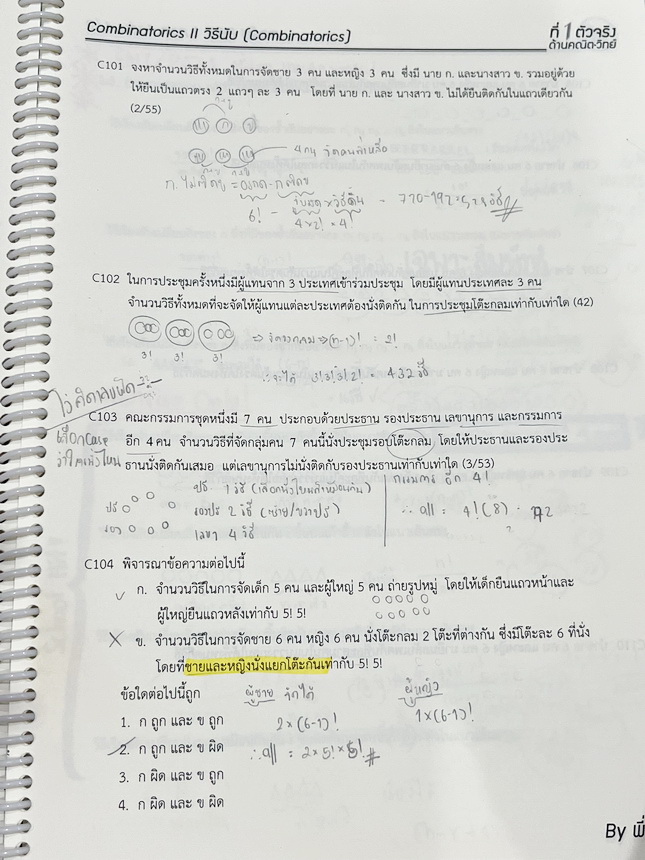 Combinatorics II วิธีนับ (Combinatorics)
ที่ 1 ตัวจริง
ด้านคณิต-วิทย์
C101 จงหาจำนวนวิธีทั้งหมดในการจัดชาย 3 คน และหญิง 3 คน ซึ่งมี นาย ก. และนางสาว ข. รวมอยู่ด้วย
ให้ยืนเป็นแถวตรง 2 แถวๆ ละ 3 คน โดยที่ นาย ก. และ นางสาว ข. ไม่ได้ยืนติดกันในแถวเดียวกัน
(2/55)
4 คน จัดคนที่เหลือ
6! -
4×2! × 4!
C102 ในการประชุมครั้งหนึ่งมีผู้แทนจาก 3 ประเทศเข้าร่วมประชุม โดยมีผู้แทนประเทศละ 3 คน
จำนวนวิธีทั้งหมดที่จะจัดให้ผู้แทนแต่ละประเทศต้องนั่งติดกัน ในการประชุมโต๊ะกลมเท่ากับเท่าใด (42)
⇒ จัดวงกลม ⇒ (n-1)! = 2!
3! 3! 3!
∴ จะได้ 3!3!3!2! = 432 วิธี
C103 คณะกรรมการชุดหนึ่งมี 7 คน ประกอบด้วยประธาน รองประธาน เลขานุการ และกรรมการ
อีก 4 คน จำนวนวิธีที่จัดกลุ่มคน 7 คนนี้นั่งประชุมรอบโต๊ะกลม โดยให้ประธานและรองประ
ธานนั่งติดกันเสมอ แต่เลขานุการไม่นั่งติดกับรองประธานเท่ากับเท่าใด (3/53)
ปธ. 1 วิธี (เลือกนั่งไหนก็เหมือนกัน)
กรรมการ อีก 4!
รองปธ 2 วิธี (ซ้าย/ขวาปธ)
∴ all = 4! (8) =
เลขา 4 วิธี
C104 พิจารณาข้อความต่อไปนี้
ก. จำนวนวิธีในการจัดเด็ก 5 คน และผู้ใหญ่ 5 คน ถ่ายรูปหมู่ โดยให้เด็กยืนแถวหน้าและ
ผู้ใหญ่ยืนแถวหลังเท่ากับ 5! 5!
ข. จำนวนวิธีในการจัดชาย 6 คน หญิง 6 คน นั่งโต๊ะกลม 2 โต๊ะที่ต่างกัน ซึ่งมีโต๊ะละ 6 ที่นั่ง
โดยที่ชายและหญิงนั่งแยกโต๊ะกันเท่ากับ 5! 5!
ข้อใดต่อไปนี้ถูก
ผู้ชาย จัดได้
ผู้หญิง
1. ก ถูก และ ข ถูก
2×(6-1)!
1×(6-1)!
2. ก ถูก และ ข ผิด
∴ all = 2×5!×5! #
3. ก ผิด และ ข ถูก
4. ก ผิด และ ข ผิด
By พี่